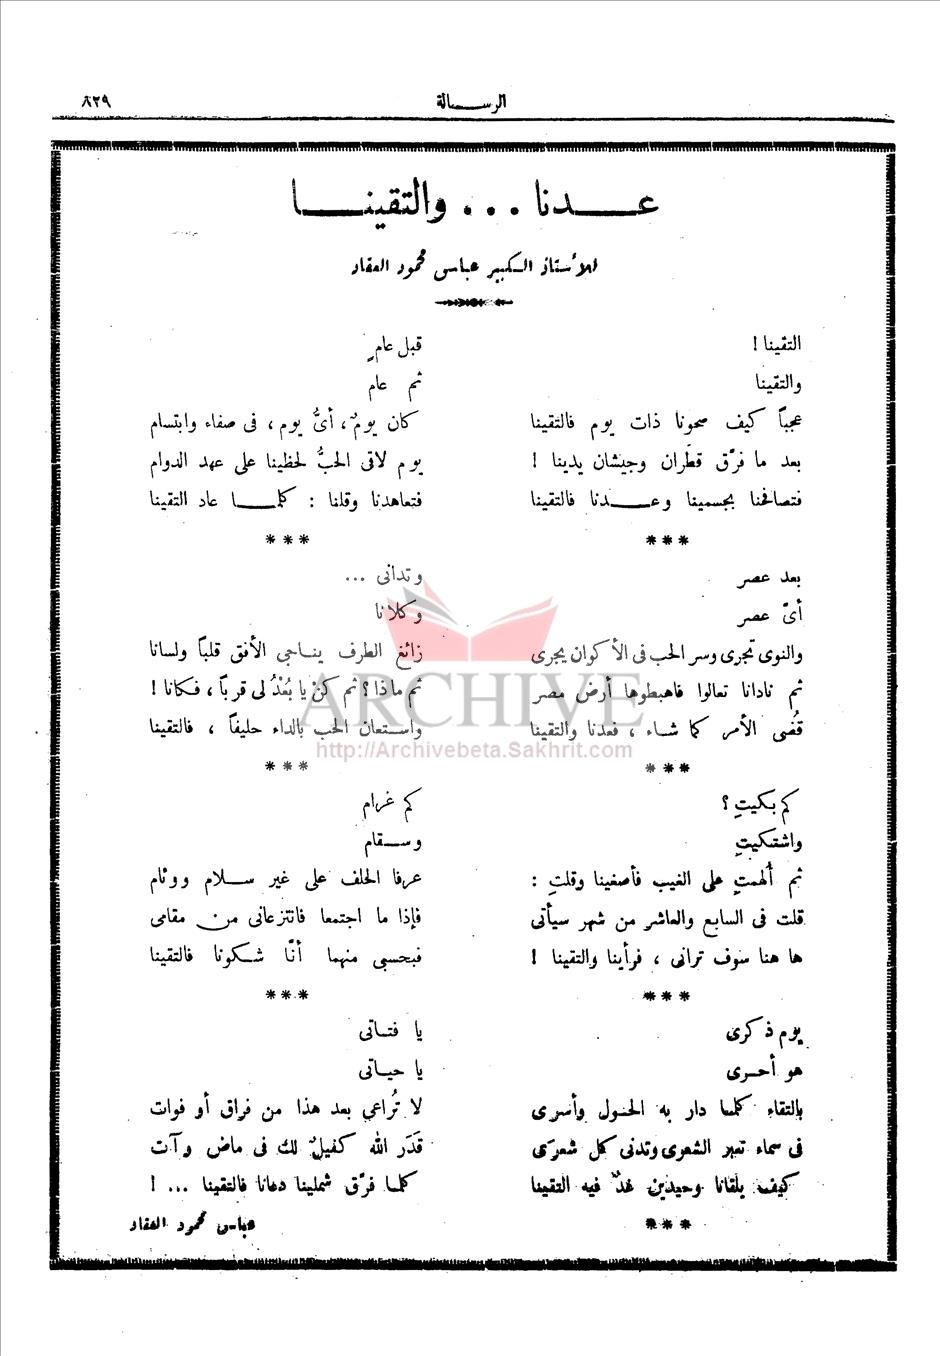 الرسالة
٨٢٩
عدنا ... والتقينا
للأستاذ الكبير عباس محمود العقاد
التقينا !
والتقينا
عجباً كيف صحونا ذات يوم فالتقينا
بعد ما فرّق قطران وجيشان يدينا !
فتصافحنا بجسمينا وعدنا فالتقينا
***
قبل عامٍ
ثم عام
كان يومٌ ، أىُّ يوم ، فى صفاء وابتسام
يوم لاقى الحبُّ لحظينا على عهد الدوام
فتعاهدنا وقلنا : كلما عاد التقينا
***
بعد عصر
أىّ عصر
والنوى تجرى وسر الحب فى الأكوان يجرى
ثم نادانا تعالوا فاهبطوها أرض مصر
قُضى الأمر كما شاء ، فعدنا والتقينا
***
وتدانى ...
وكلانا
زائغ الطرف يناجى الأفق قلباً ولسانا
ثم ماذا ؟ ثم كنْ يا بُعْدُ لى قرباً ، فكانا !
واستعان الحب بالداء حليفاً ، فالتقينا
***
كم بكيتِ ؟
واشتكيتِ
ثم أُلهمتِ على الغيب فأصغينا وقلتِ :
قلت فى السابع والعاشر من شهر سيأتى
ها هنا سوف ترانى ، فرأينا والتقينا !
***
كم غرام
وسقام
عرفا الحلف على غير سلام ووئام
فإذا ما اجتمعا فانتزعانى من مقامى
فبحسبى منهما أنّا شكونا فالتقينا
***
يوم ذكرى
هو أحرى
بالتقاء كلما دار به الحول وأسرى
فى سماء تعبر الشعرى وتدنى كل شعرَى
كيف يلقانا وحيدين غدٌ فيه التقينا
***
يا فتاتى
يا حياتى
لا تُراعي بعد هذا من فراق أو فوات
قَدَر الله كفيلٌ لك فى ماض وآت
كلما فرّق شملينا دعانا فالتقينا ... !
عباس محمود العقاد
ARCHIVE
http://Archivebeta.Sakhrit.com